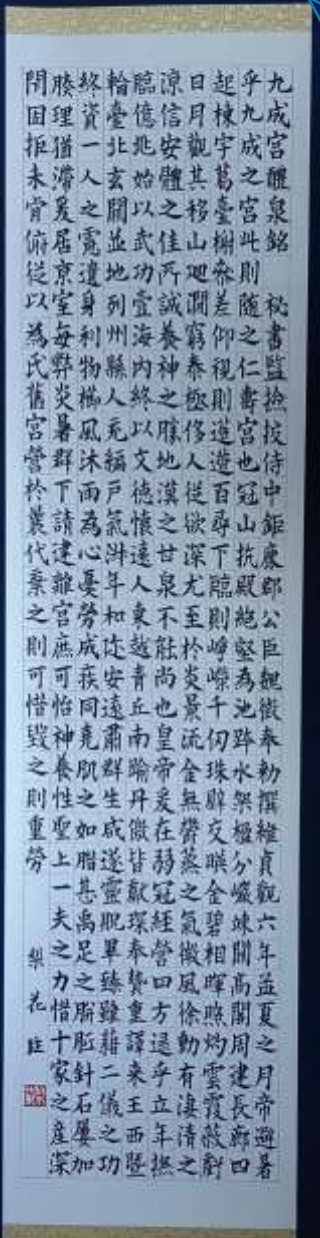 九成宮醴泉銘 秘書監撿挍侍中鉅鹿郡公臣魏徵奉勑撰維貞觀六年孟夏之月帝避暑
乎九成之宮此則隨之仁壽宮也冠山抗殿絕壑為池跨水架楹分巖竦闕高閣周建長廊四
起棟宇葛臺榭參差仰視則迢遰百尋下臨則崢嶸千仞珠壁交暎金碧相暉照灼雲霞蔽虧
日月觀其移山迴澗窮泰極侈人從欲深尤至於炎景流金無鬱蒸之氣微風徐動有淒清之
涼信安體之佳所誠養神之勝地漢之甘泉不能尚也皇帝爰在弱冠經營四方逮乎立年撫
臨億兆始以武功壹海內終以文德懷遠人東越青丘南踰丹徼皆獻琛奉贄重譯來王西曁
輪臺北玄闕並地列州縣人充編戶氣淑年和迩安遠肅群生咸遂靈貺畢臻雖藉二儀之功
終資一人之慮遺身利物櫛風沐雨為心憂勞成疾同堯肌之如腊甚禹足之胼胝針石屢加
腠理猶滯爰居京室每弊炎暑群下請建離宮庶可怡神養性聖上一夫之力惜十家之産深
閇固拒未肯俯從以為氏舊宮營於曩代棄之則可惜毀之則重勞
梨花